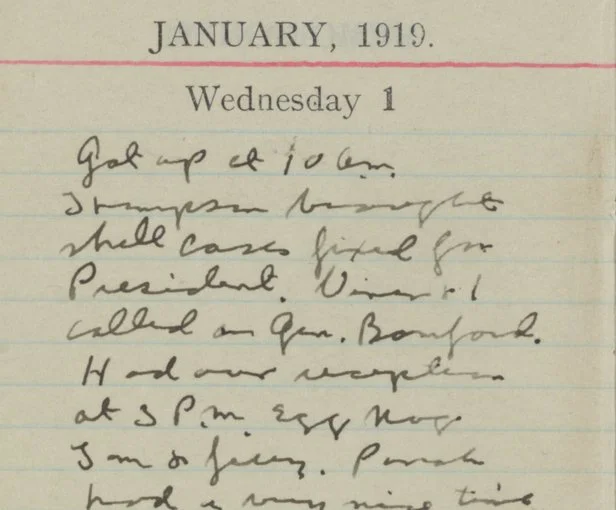 JANUARY, 1919.
Wednesday 1
Got up at 10 a.m.
brought
shell cases fixed for
President. & I
called on Gen. Bonford.
Had our reception
at 5 P.m. Egg Nog
had a very nice time